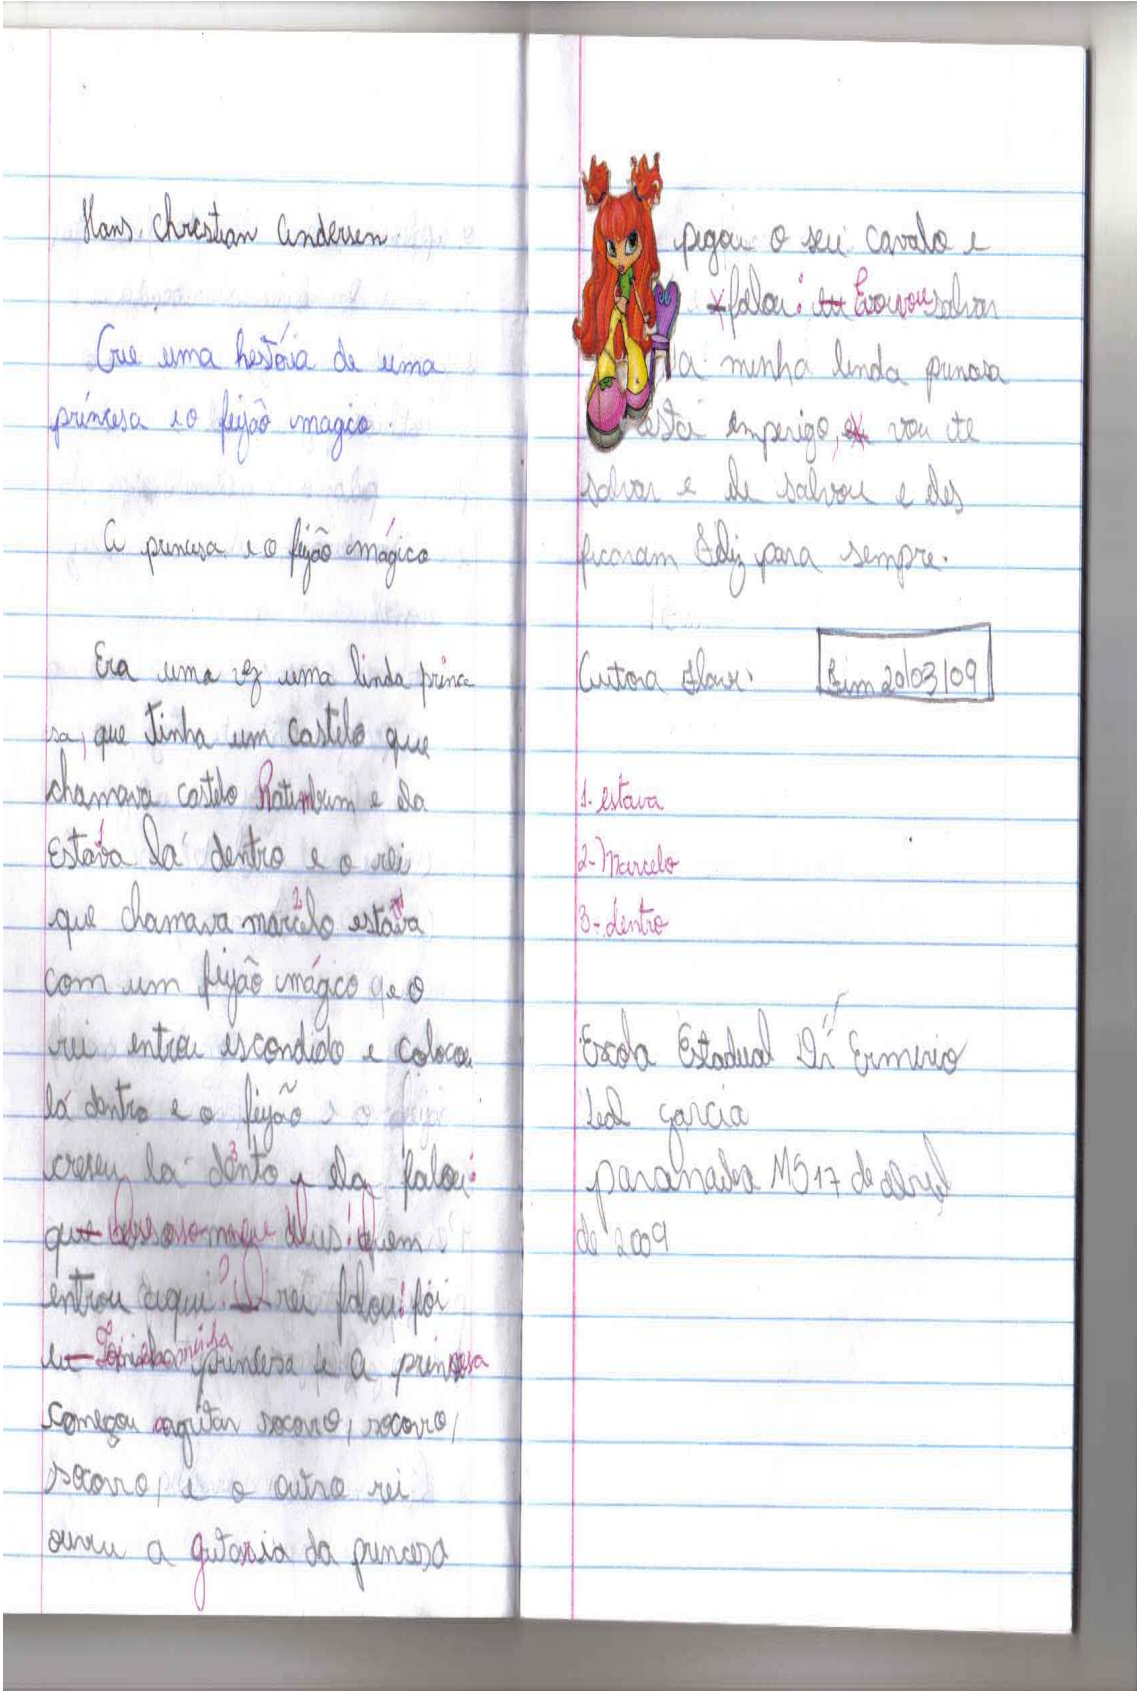 Hans. Chrestian Andersen.
Crie uma hestória de uma
princesa e o feijão magico.
A princesa e o feijão mágico
Era uma vez uma linda prince
sa, que tinha um castelo que
chamava castelo Ratimbum e ela
estava lá dentro e o rei
que chamava marcelo estava
com um feijão mágico e o
rei entrou escondido e colocou
lá dentro e o feijão
creseu la dento e ela falou:
que deus: quem
entrou aqui? O rei falou: foi
eu princesa e a princesa
começou agritar socorro, socorro,
socorro, e o outro rei
ouviu a gritaria da princesa
pegou o seu cavalo e
falou: Eu vou salvar
a minha linda princesa
está emperigo, vou te
salvar e ele salvou e eles
ficaram feliz para sempre.
Autora
Fim 20/03/09
1. estava
2- Marcelo
3- dentro
Escola Estadual Dr Ermirio
Leal garcia
paranaiba MS 17 de abril
de 2009